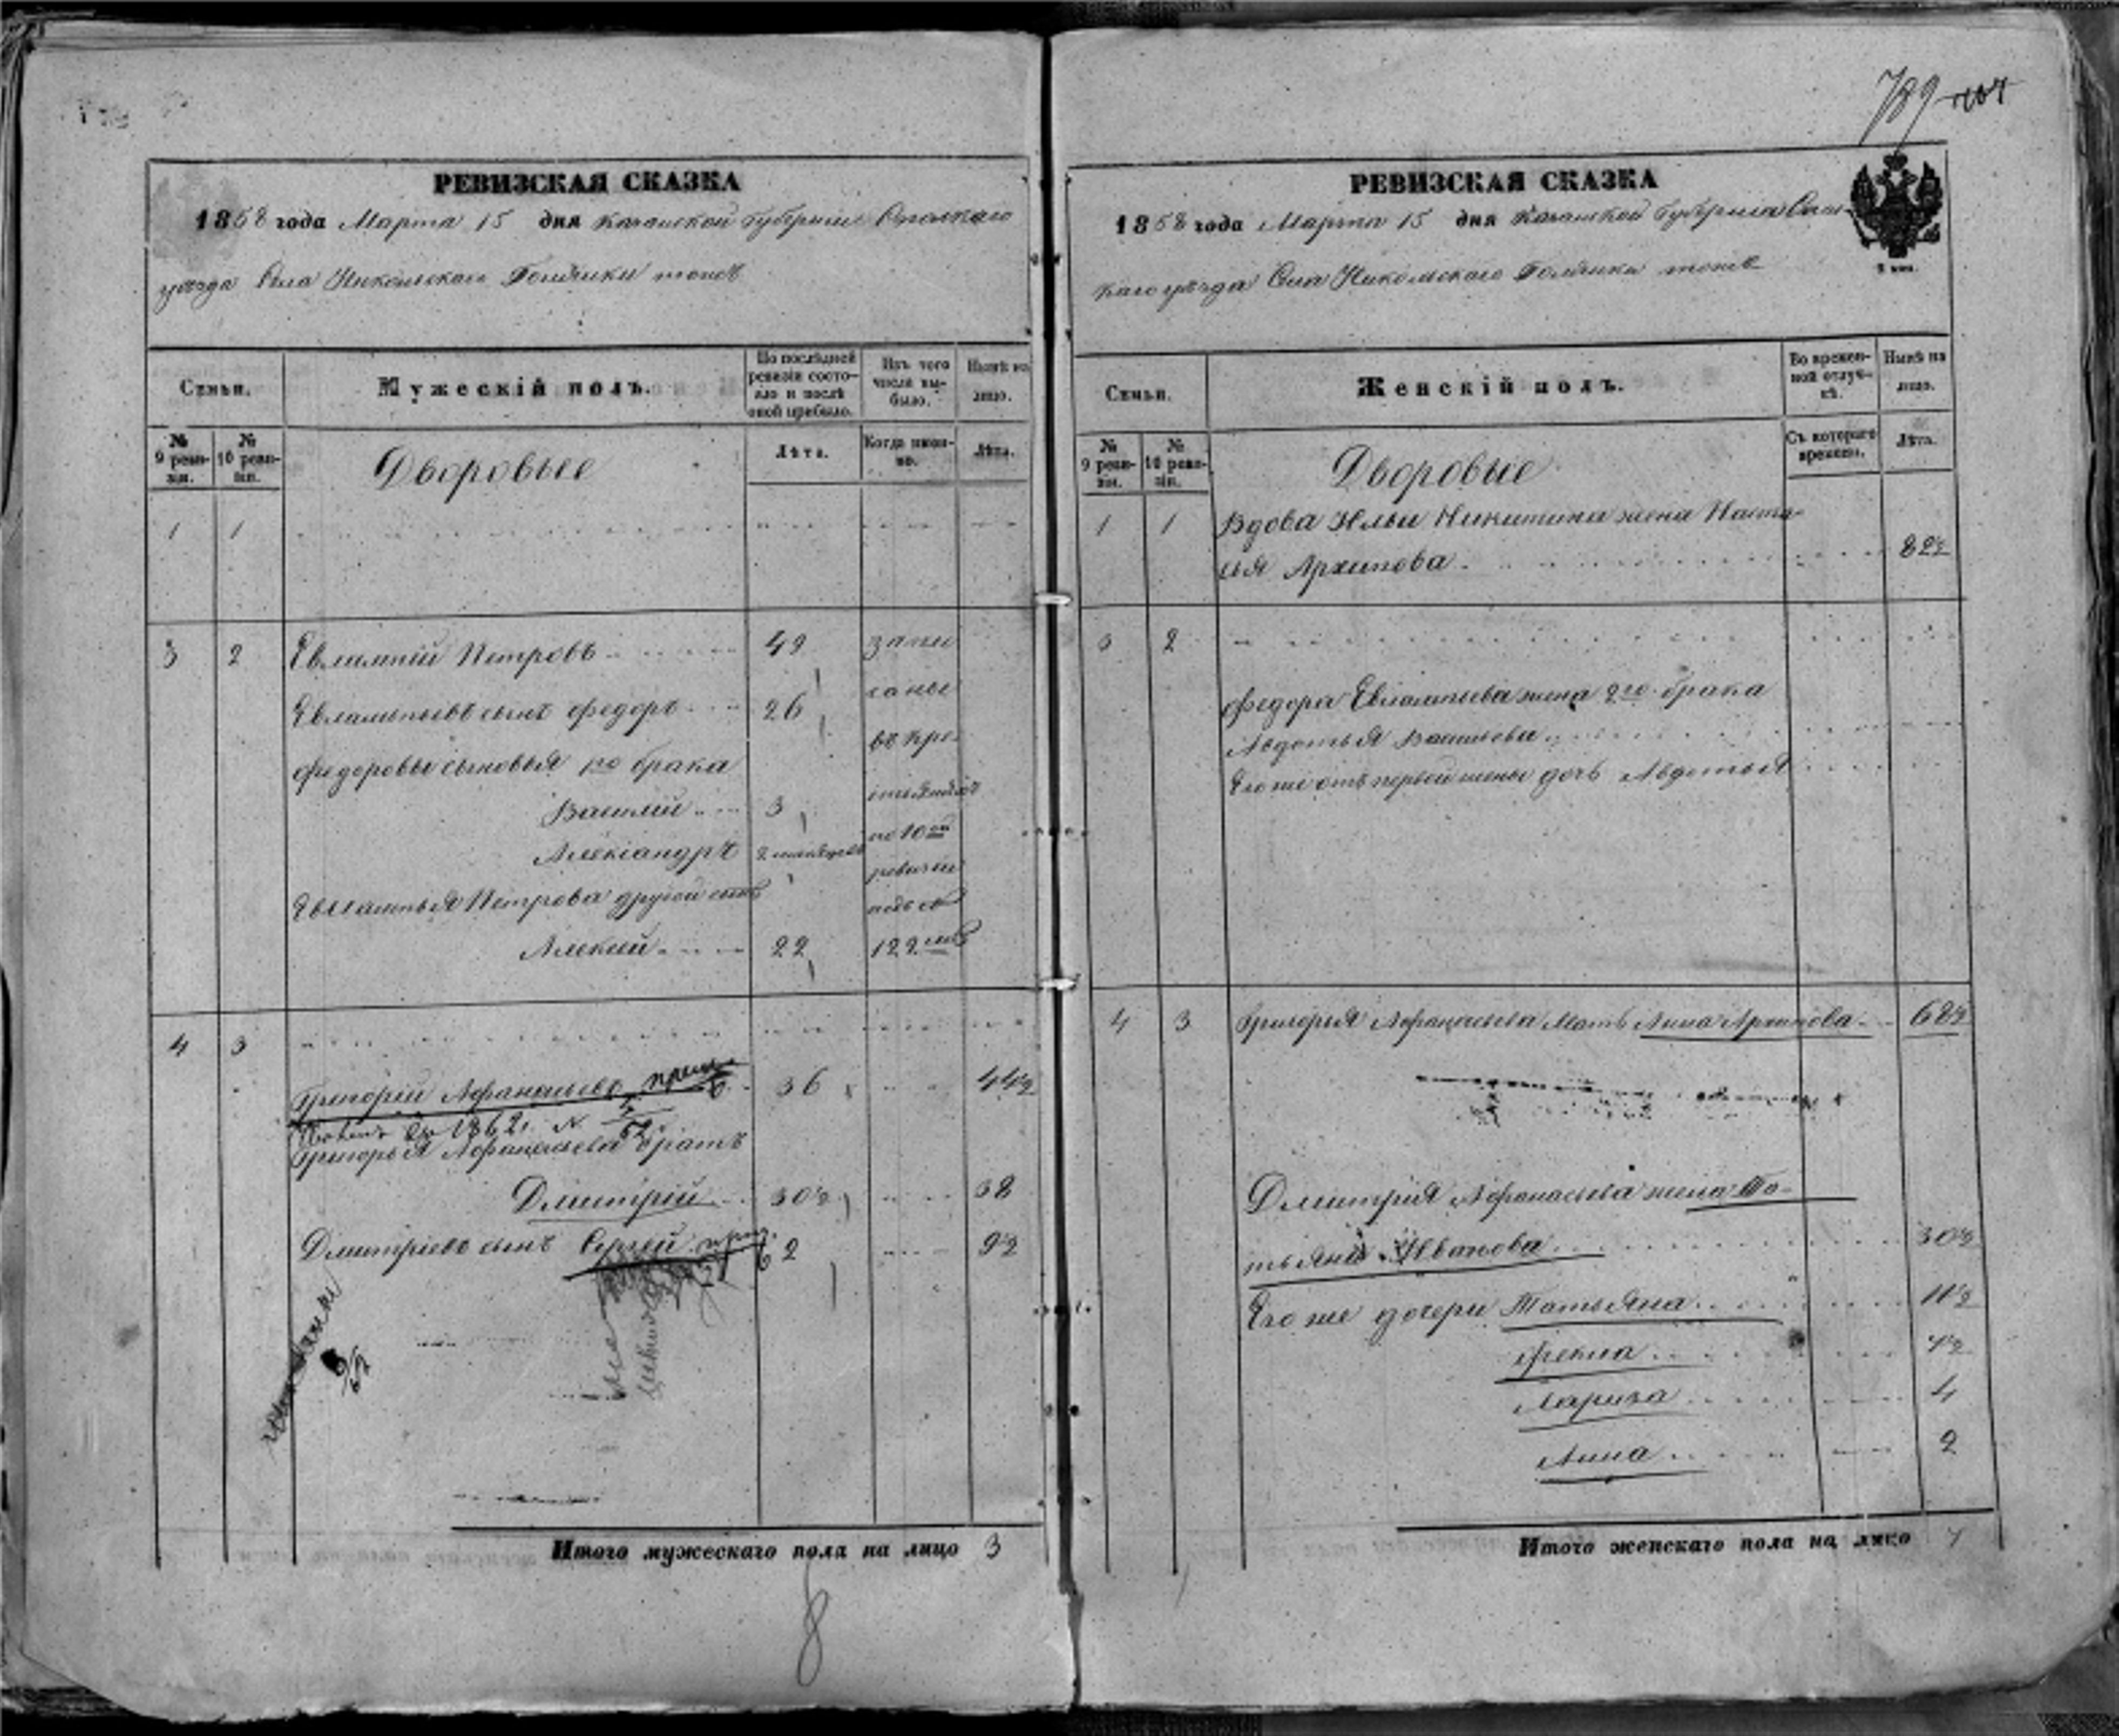 789
РЕВИЗСКАЯ СКАЗКА
1858 года Марта 15 дня Казанской Губернии Спасскаго
уѣзда Села Никольскаго Толчики тожъ
Семьи.
Мужескій полъ.
По послѣдней ревизіи состо-
яло и послѣ
оной прибыло.
Изъ того
числа вы-
было.
Нынѣ на
лицо.
№
9 реви-
зіи.
№
10 реви-
зіи.
Дворовые
Лѣта.
Когда имен-
но.
Лѣта.
1 1
3 2 Евлампій Петровъ 49 запи
саны
Евлампьевъ сынъ Федоръ 26
въ кре-
Федоровы сыновья 1го брака
Василій 3 стьянахъ
по 10ой
Александръ
ревизіи
Евлампья Петрова другой сынъ
подъ №
Алексѣй 22 122мъ
4 3
Григорій Афанасьевъ 36 44½
1862 г. №
Григорья Афанасьева братъ
Дмитрій 30½ 38
Дмитріевъ сынъ Сергѣй 2 9½
Итого мужескаго пола на лицо 3
8
РЕВИЗСКАЯ СКАЗКА
1858 года Марта 15 дня Казанской Губернии Спас-
каго уѣзда Села Никольскаго Толчики тожъ
Семьи.
Женскій полъ.
Во времен-
ной отлуч-
кѣ.
Нынѣ на
лицо.
№
9 реви-
зіи.
№
10 реви-
зіи.
Дворовые
Съ котораго
времени.
Лѣта.
1 1 Вдова Ильи Никитина жена Наста-
сья Архипова 82½
3 2
Федора Евлампьева жена 2го брака
Авдотья Васильева
Его же отъ первой жены дочь Авдотья
4 3 Григорья Афанасьева Мать Анна Архипова 68½
Дмитрія Афанасьева жена Та-
тьяна Иванова 30½
Его же дочери Татьяна 11½
Фекла 7½
Лариса 4
Анна 2
Итого женскаго пола на лицо 7